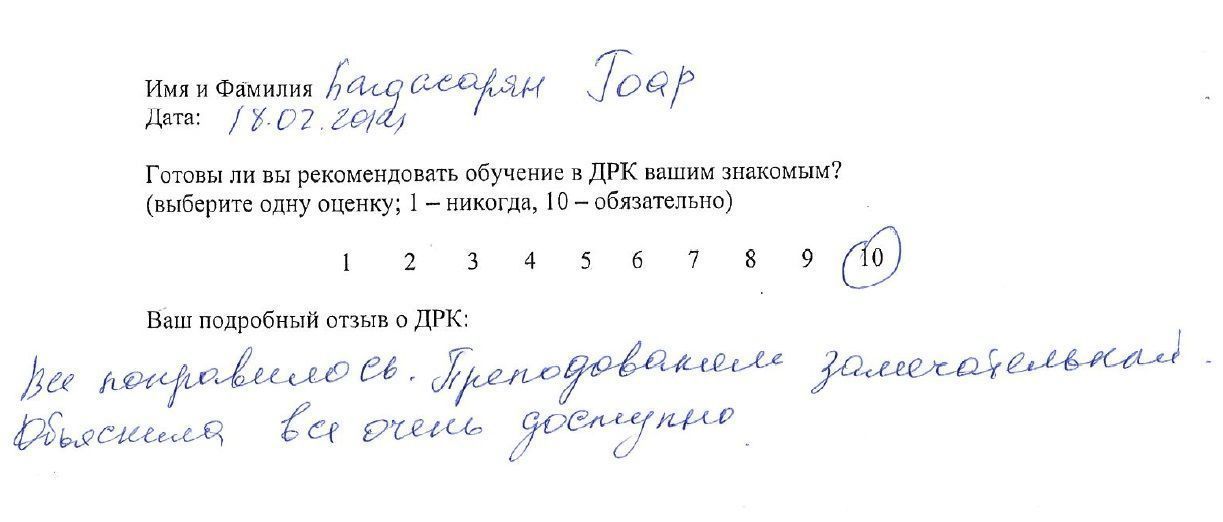 Имя и Фамилия Багдасарян Гоар
Дата: 18.02.
Готовы ли вы рекомендовать обучение в ДРК вашим знакомым?
(выберите одну оценку; 1 – никогда, 10 – обязательно)
1 2 3 4 5 6 7 8 9 10
Ваш подробный отзыв о ДРК:
Все понравилось. замечательный.
Объяснила все очень доступно